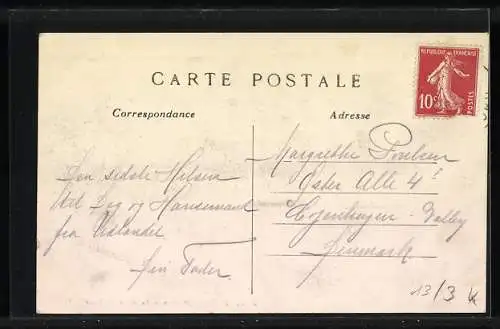 CARTE POSTALE
Correspondance
Adresse
REPUBLIQUE FRANÇAISE
10c
POSTES
Den sidste Hilsen
til Dig og Hansemand
fra Udlandet
Din Fader
Margrethe
Øster Alle 4
Valby
Denmark
13/3 K